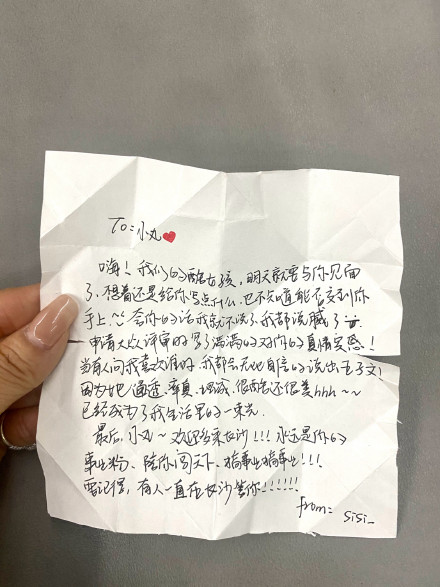 To：小丸❤
嗨！我们的酷女孩，明天就要与你见面
了，想着还是给你写点什么，也不知道能不能交到你
手上^^会你的话我就不说了，我都说腻了
申请大众评审时写了满满的对你的真情实感！
当有人问我喜欢谁时，我都会无比自信的说出
因为她通透、率真、坦诚，很酷还很美hhh~~
已经成为了我生活里的一束光
最后，小丸~欢迎来长沙！！！永远是你的
事业粉、陪你闯天下、搞事业搞事业！！！
要记得，有人一直在长沙等你！！！！！！
from= sisi_